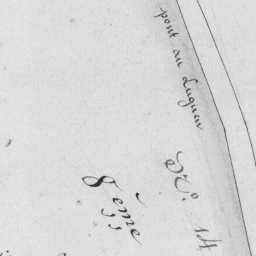 pont au Luguen
N.º 14
8 ème